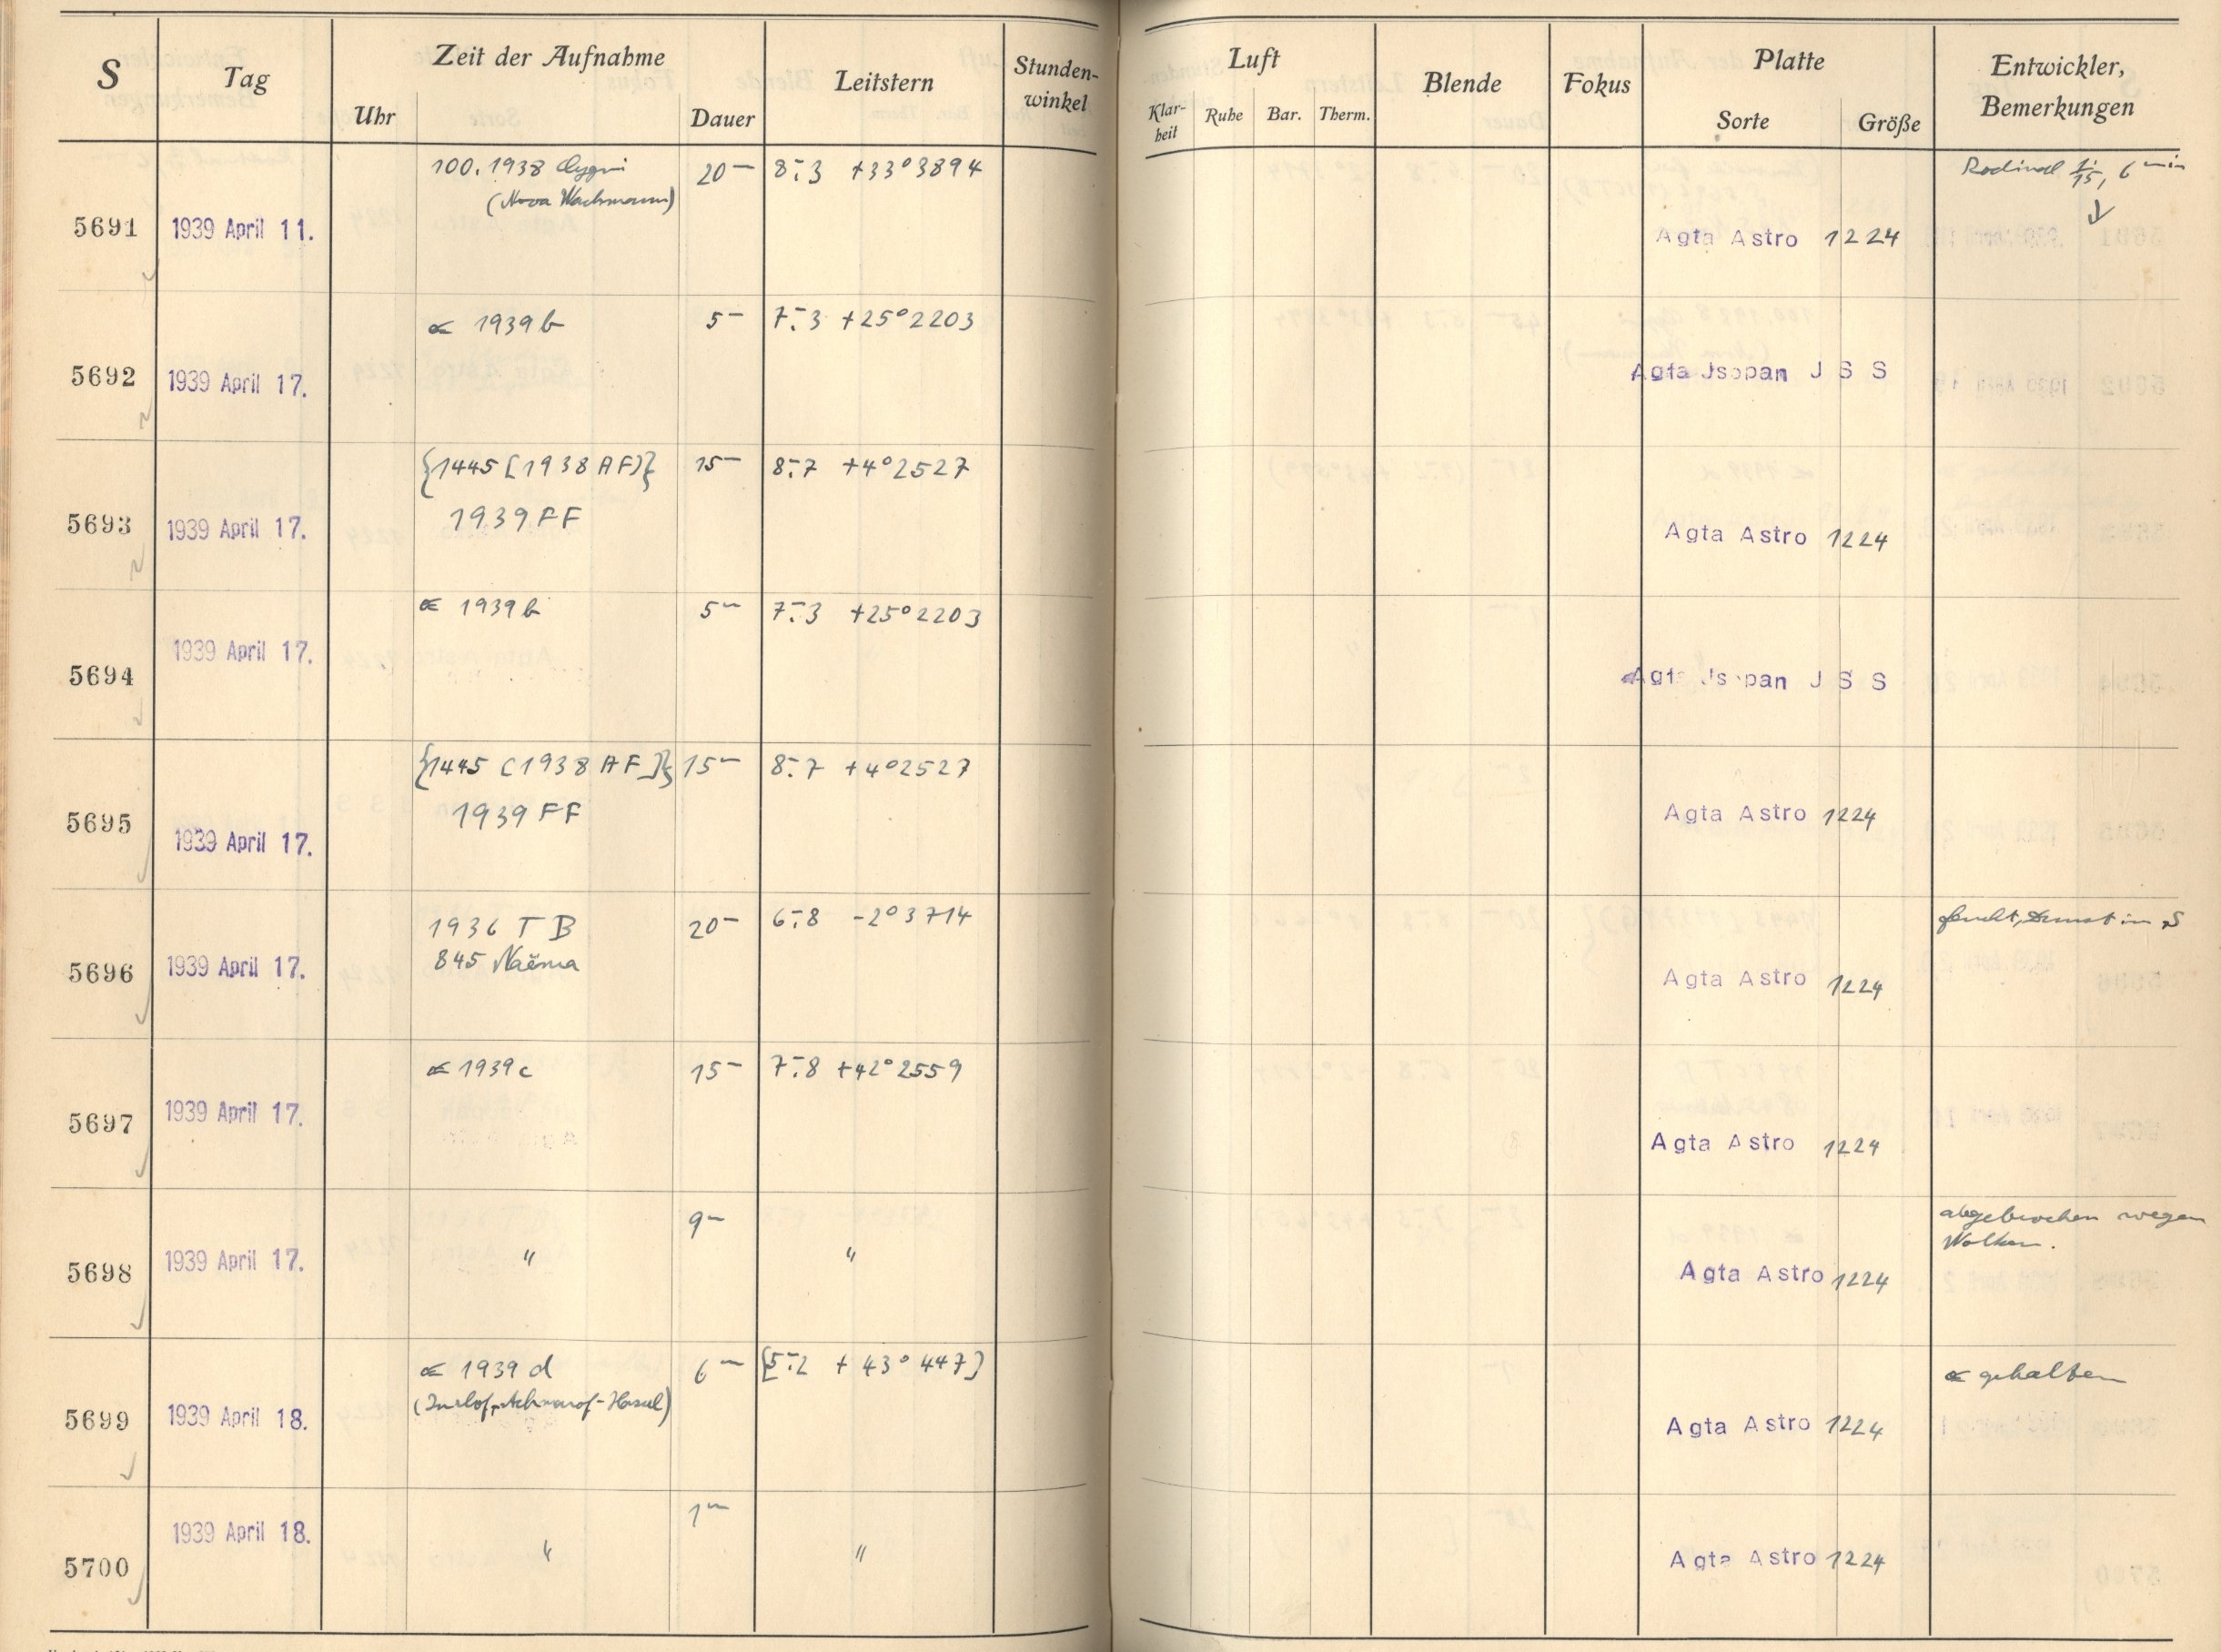 S Tag Zeit der Aufnahme Leitstern Stunden-winkel Luft Blende Fokus Platte Entwickler, Bemerkungen
Uhr Dauer Klar-heit Ruhe Bar. Therm. Sorte Größe
100.1938 Cygni 20ᵐ 8ᵐ.3 +33°3894 Rodinal 1/15, 6 min
(Nova Wachmann)
5691 1939 April 11. Agfa Astro 1224
☄ 1939 b 5ᵐ 7ᵐ.3 +25°2203
5692 1939 April 17. Agfa Jsopan J S S
{1445 [1938 AF]} 15ᵐ 8ᵐ.7 +4°2527
1939 FF
5693 1939 April 17. Agfa Astro 1224
☄ 1939 b 5ᵐ 7ᵐ.3 +25°2203
5694 1939 April 17. Agfa Jsopan J S S
{1445 [1938 AF]} 15ᵐ 8ᵐ.7 +4°2527
1939 FF
5695 1939 April 17. Agfa Astro 1224
1936 T B 20ᵐ 6ᵐ.8 -2°3714 feucht, Dunst in S
845 Naëma
5696 1939 April 17. Agfa Astro 1224
☄ 1939 c 15ᵐ 7ᵐ.8 +42°2559
5697 1939 April 17. Agfa Astro 1224
9ᵐ abgebrochen wegen
Wolken.
5698 1939 April 17. " " Agfa Astro 1224
☄ 1939 d 6ᵐ [5ᵐ.2 + 43°447] ☄ gehalten
(Jurlof, Achmarof-Hassel)
5699 1939 April 18. Agfa Astro 1224
1ᵐ
5700 1939 April 18. " " Agfa Astro 1224